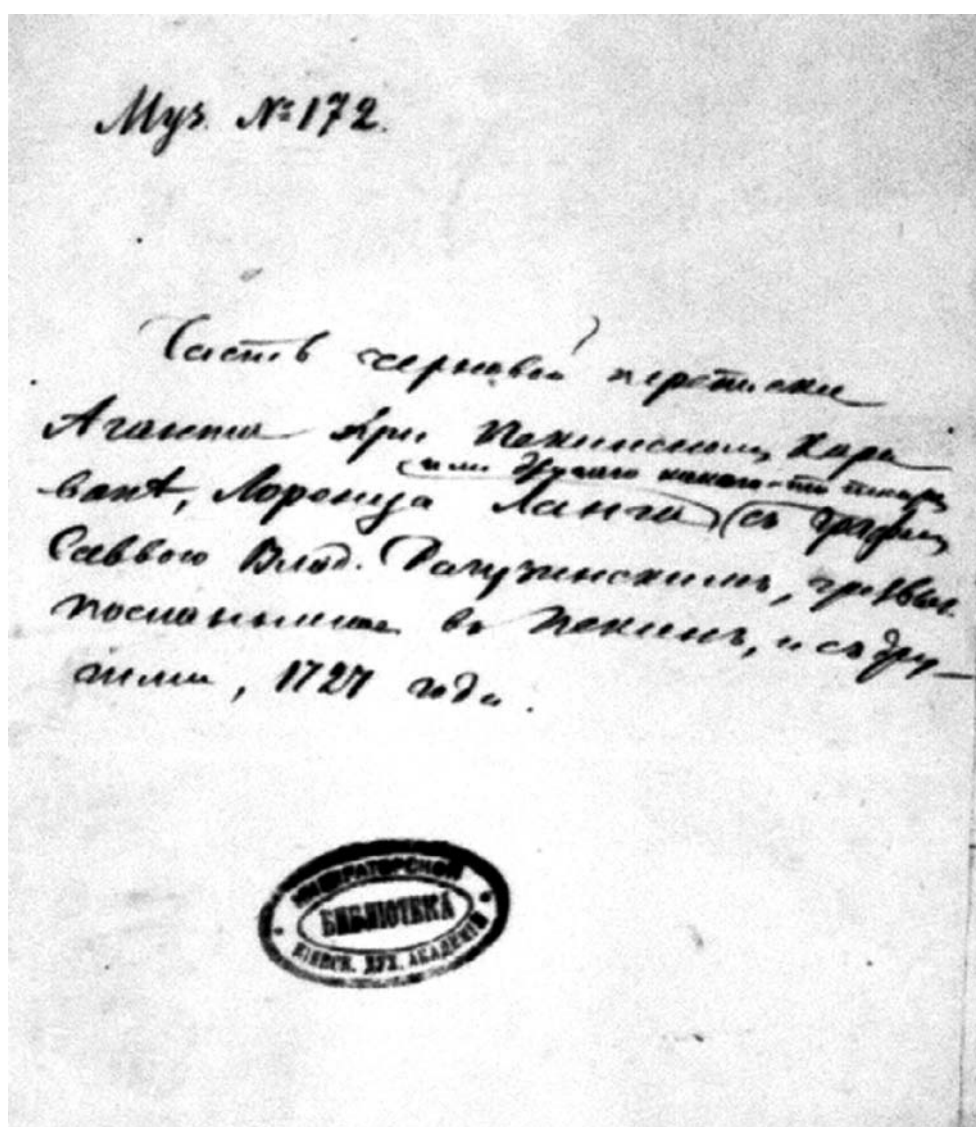 Муз. № 172.
Часть черновой переписки
Агента при Пекинском Кара-
(или другого какого-то
ванѣ, Лоренца Ланга) (съ графомъ
Саввою Влад. Рагузинскимъ, чрезвыч.
посланникомъ въ Пекинъ, и съ дру-
гими, 1727 года.
ИМПЕРАТОРСКОЙ
БИБЛІОТЕКА
КІЕВСК. ДУХ. АКАДЕМІИ